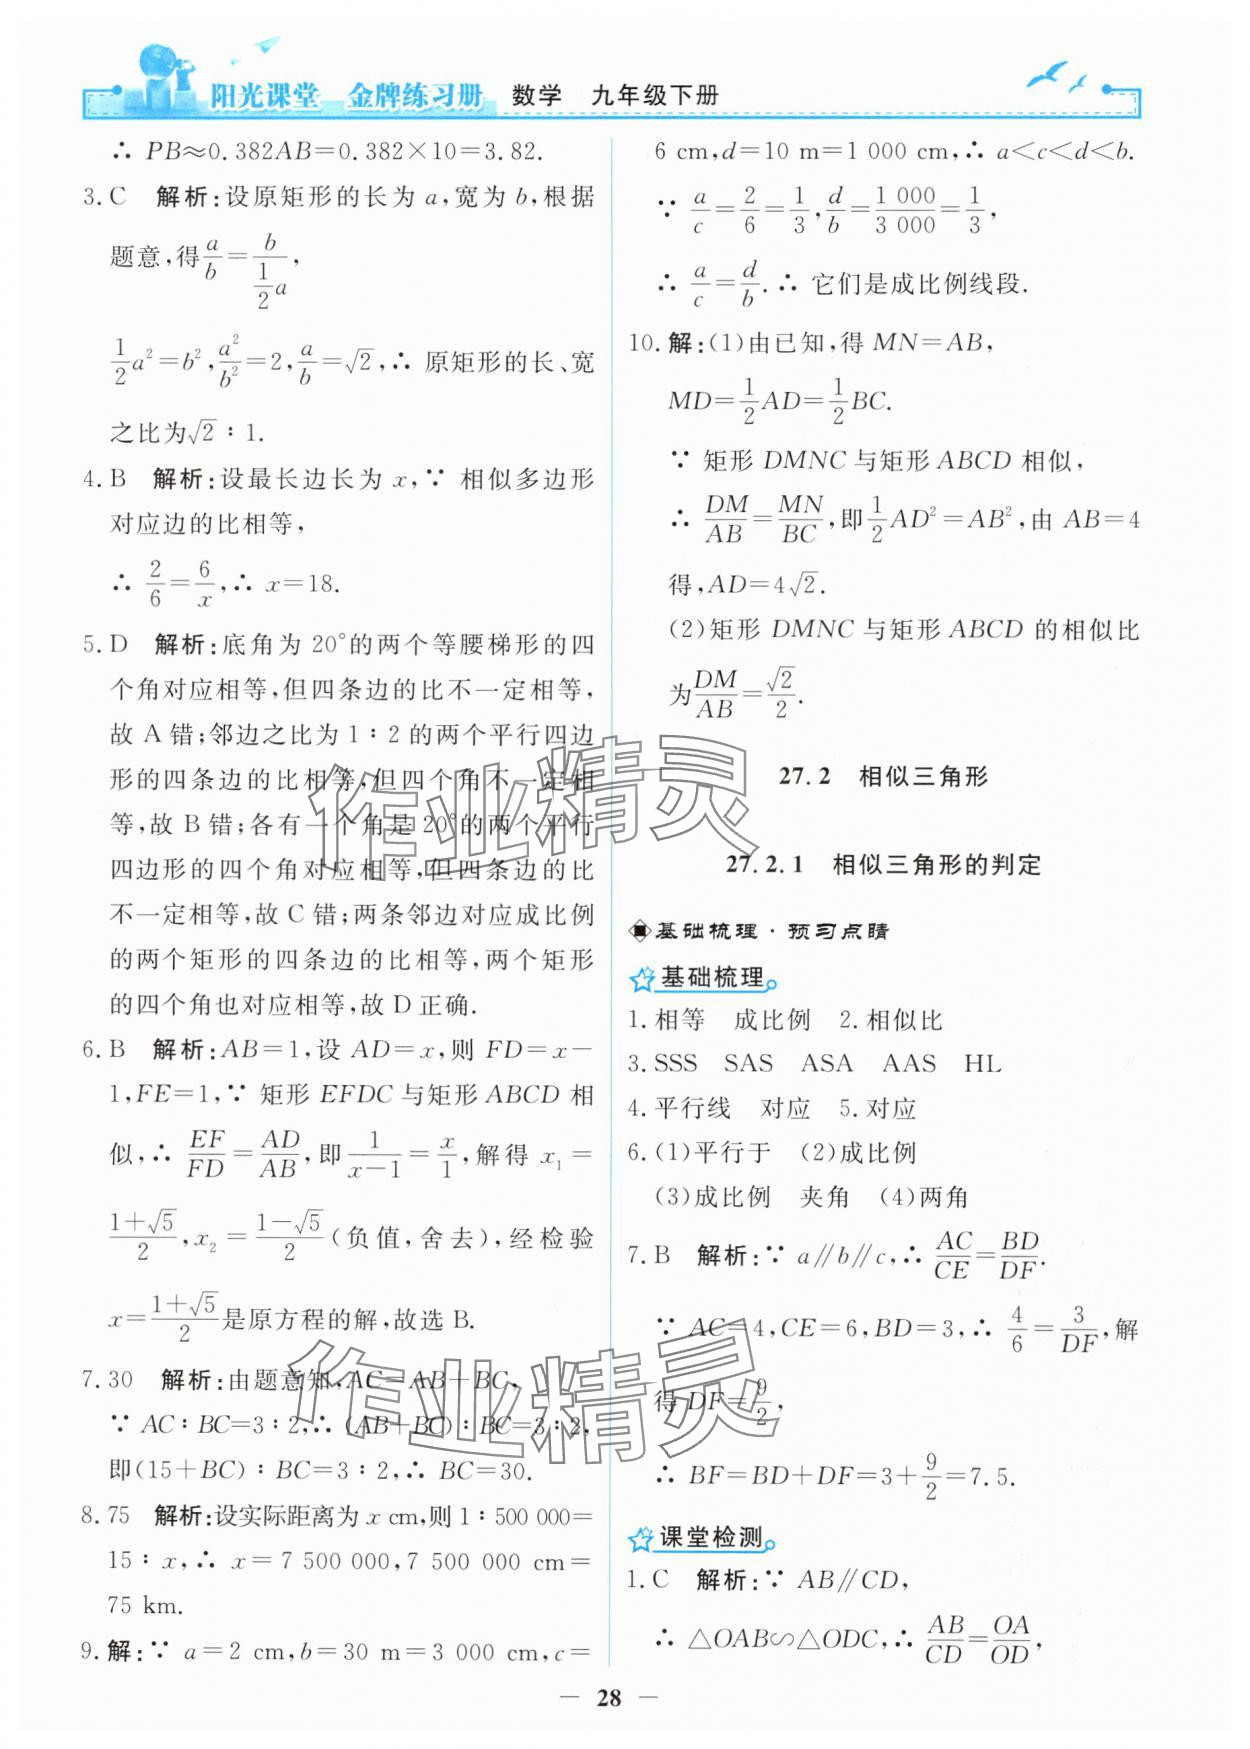 阳光课堂 金牌练习册 数学 九年级下册
∴ PB≈0.382AB=0.382×10=3.82.
3.C 解析:设原矩形的长为 a,宽为 b,根据
题意,得 a/b = b/(1/2 a),
1/2 a²=b², a²/b²=2, a/b=√2,∴ 原矩形的长、宽
之比为√2∶1.
4.B 解析:设最长边长为 x,∵ 相似多边形
对应边的比相等,
∴ 2/6=6/x,∴ x=18.
5.D 解析:底角为 20°的两个等腰梯形的四
个角对应相等,但四条边的比不一定相等,
故 A 错;邻边之比为 1∶2 的两个平行四边
形的四条边的比相等,但四个角不一定相
等,故 B 错;各有一个角是 20°的两个平行
四边形的四个角对应相等,但四条边的比
不一定相等,故 C 错;两条邻边对应成比例
的两个矩形的四条边的比相等,两个矩形
的四个角也对应相等,故 D 正确.
6.B 解析:AB=1,设 AD=x,则 FD=x-
1,FE=1,∵ 矩形 EFDC 与矩形 ABCD 相
似,∴ EF/FD=AD/AB,即 1/(x-1)=x/1,解得 x₁=
(1+√5)/2,x₂=(1-√5)/2(负值,舍去),经检验
x=(1+√5)/2是原方程的解,故选 B.
7.30 解析:由题意知,AC=AB+BC,
∵ AC∶BC=3∶2,∴ (AB+BC)∶BC=3∶2,
即(15+BC)∶BC=3∶2,∴ BC=30.
8.75 解析:设实际距离为 x cm,则 1∶500 000=
15∶x,∴ x=7 500 000,7 500 000 cm=
75 km.
9.解:∵ a=2 cm,b=30 m=3 000 cm,c=
6 cm,d=10 m=1 000 cm,∴ a<c<d<b.
∵ a/c=2/6=1/3,d/b=1 000/3 000=1/3,
∴ a/c=d/b.∴ 它们是成比例线段.
10.解:(1)由已知,得 MN=AB,
MD=1/2 AD=1/2 BC.
∵ 矩形 DMNC 与矩形 ABCD 相似,
∴ DM/AB=MN/BC,即 1/2 AD²=AB²,由 AB=4
得,AD=4√2.
(2)矩形 DMNC 与矩形 ABCD 的相似比
为 DM/AB=√2/2.
27.2 相似三角形
27.2.1 相似三角形的判定
基础梳理·预习点睛
基础梳理
1.相等 成比例 2.相似比
3.SSS SAS ASA AAS HL
4.平行线 对应 5.对应
6.(1)平行于 (2)成比例
(3)成比例 夹角 (4)两角
7.B 解析:∵ a∥b∥c,∴ AC/CE=BD/DF.
∵ AC=4,CE=6,BD=3,∴ 4/6=3/DF,解
得 DF=9/2,
∴ BF=BD+DF=3+9/2=7.5.
课堂检测
1.C 解析:∵ AB∥CD,
∴ △OAB∽△ODC,∴ AB/CD=OA/OD,
— 28 —
作业精灵
作业精灵